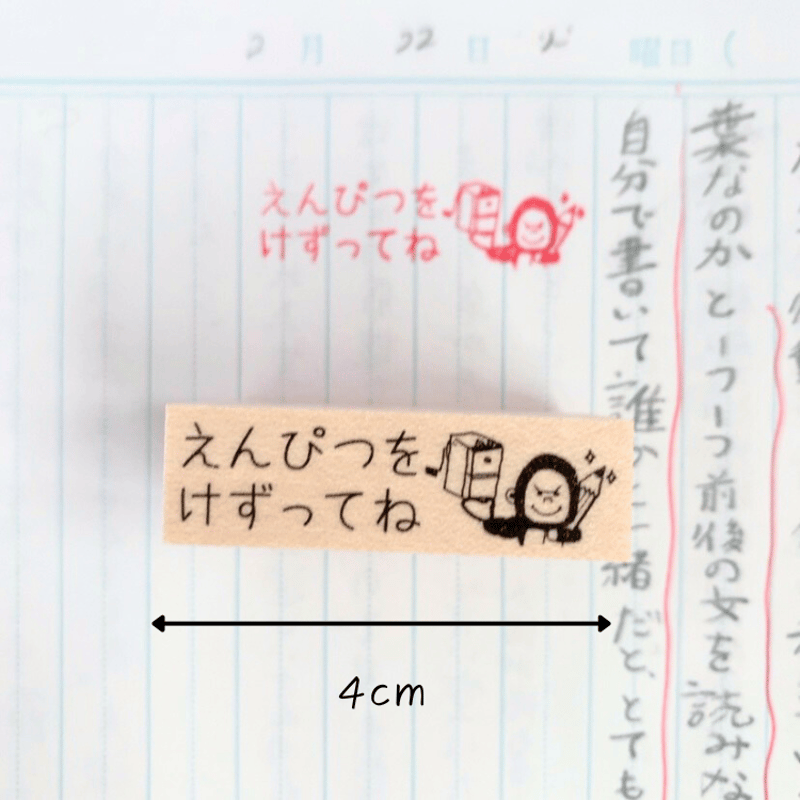 2月22日 曜日(
えんぴつを
けずってね
えんぴつを
けずってね
4cm
葉なのかと一つ一つ前後の文を読みな
自分で書いて誰かと一緒だと、とても